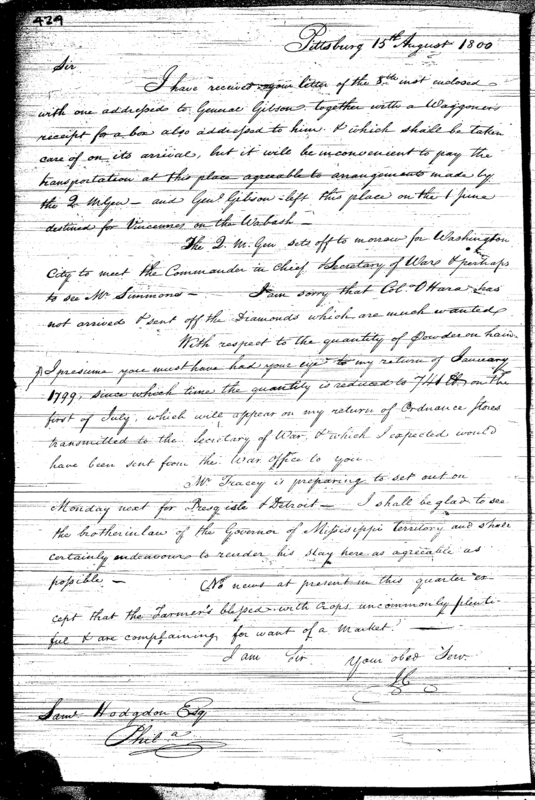 424
Pittsburg 15th August 1800
Sir
I have received your letter of the 8th inst enclosed
with one addressed to General Gibson together with a Waggoners
receipt for a box also addressed to him & which shall be taken
care of on its arrival, but it will be inconvenient to pay the
transportation at this place agreeable to arrangements made by
the Q. M Gen — and Genl Gibson left this place on the 1 June
destined for Vincennes on the Wabash —
The Q. M. Gen sets off to morrow for Washington
City to meet the Commander in chief & Secretary of War & perhaps
to see Mr Simmons — I am sorry that Col. OHara has
not arrived & sent off the Diamonds which are much wanted
With respect to the quantity of Powder on hand
I presume you must have had your eye to my return of January
1799, since which time the quantity is reduced to 741 lb on the
first of July, which will appear on my return of Ordnance Stores
transmitted to the Secretary of War, & which I expected would
have been sent from the War office to you
Mr Tracey is preparing to set out on
Monday next for Presqisle & Detroit — I shall be glad to see
the brotherinlaw of the Governor of Missisippi territory and shall
certainly endeavour to render his stay here as agreeable as
possible — No news at present in this quarter ex-
cept that the Farmer's blessed with Crops uncommonly plenti-
ful & are complaining for want of a Market —
I am Sir Your obed Serv.
Saml Hodgdon Esq
Phila